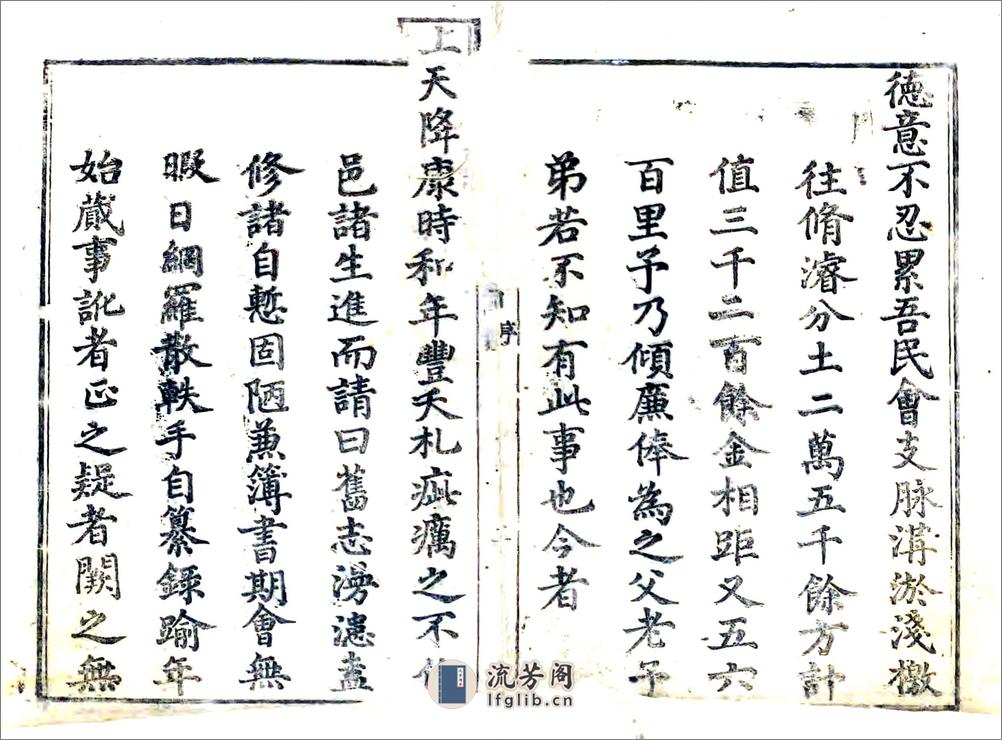 德意不忍累吾民會支脉溝淤淺檄
往脩濬分土二萬五千餘方計
值三千二百餘金相距又五六
百里予乃傾廉俸為之父老子
弟若不知有此事也今者
序
上天降康時和年豐夭札疵癘之不作
邑諸生進而請曰舊志漫漶盍
修諸自慙固陋兼簿書期會無
暇日網羅散軼手自纂錄踰年
始蕆事訛者正之疑者闕之無
流芳阁
lfglib.cn